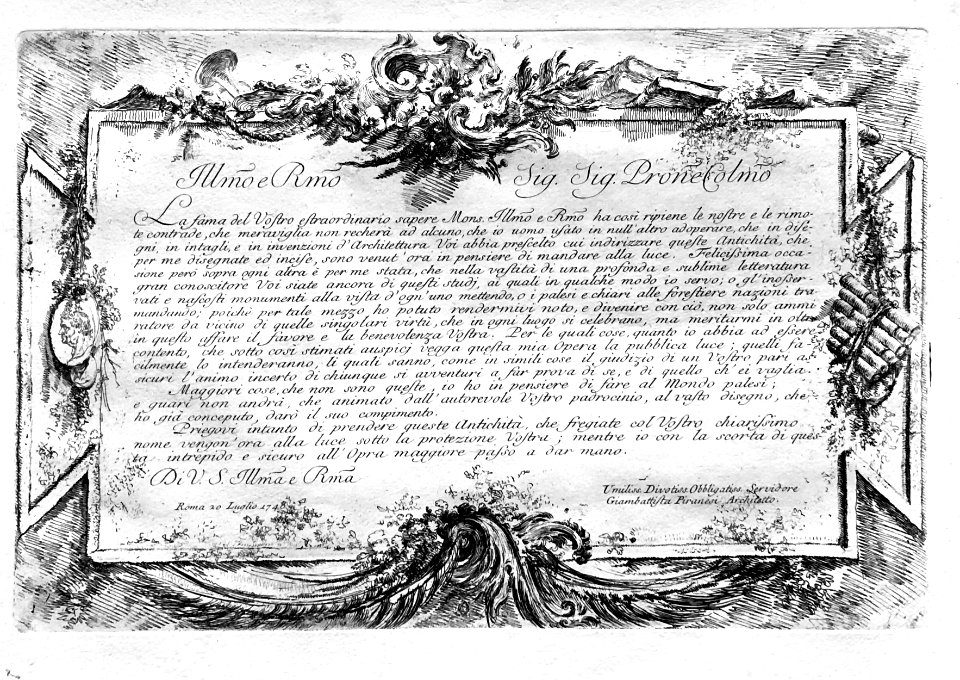 Illm̃o e Rm̃o Sig. Sig. Proñe Colmõ
La fama del Vostro estraordinario sapere Mons. Illm̃o e Rm̃o ha così ripiene le nostre e le rimo-
te contrade, che meraviglia non recherà ad alcuno, che io uomo usato in null'altro adoperare, che in dise-
gni, in intagli, e in invenzioni d'Architettura Voi abbia prescelto cui indirizzare queste Antichità, che
per me disegnate ed incise, sono venut' ora in pensiere di mandare alla luce. Felicissima occa-
sione però sopra ogni altra è per me stata, che nella vastità di una profonda e sublime letteratura
gran conoscitore Voi siate ancora di questi studj, ai quali in qualche modo io servo; o gl'inosser-
vati e nascosti monumenti alla vista d'ogn'uno mettendo, o i palesi e chiari alle forestiere nazioni tra
mandando; poichè per tal mezzo, ho potuto rendermivi noto, e divenire con ciò, non solo ammi
ratore da vicino di quelle singolari virtù, che in ogni luogo si celebrano, ma meritarmi in oltre
in questo affare il favore e la benevolenza Vostra. Per le quali cose, quanto io abbia ad essere
contento, che sotto così stimati auspicj vegga questa mia Opera la pubblica luce; quelli, fa-
cilmente lo intenderanno, li quali sanno come in simili cose il giudizio di un Vostro pari as-
sicuri l'animo incerto di chiunque si avventuri a far prova di se, e di quello ch'ei vaglia.
Maggiori cose, che non sono queste, io ho in pensiere di fare al Mondo palesi;
e guari non andrà, che animato dall'autorevole Vostro padrocinio, al vasto disegno, che
ho già conceputo, darò il suo compimento.
Priegovi intanto di prendere queste Antichità, che fregiate col Vostro chiarissimo
nome vengon'ora alla luce sotto la protezione Vostra; mentre io con la scorta di ques
ta intrepido e sicuro all'Opra maggiore passo a dar mano.
Di V. S. Illm̃a e Rm̃a
Roma 20 Luglio 174
Umiliss. Divotiss. Obbligatiss. Servidore
Giambattista Piranesi Architetto